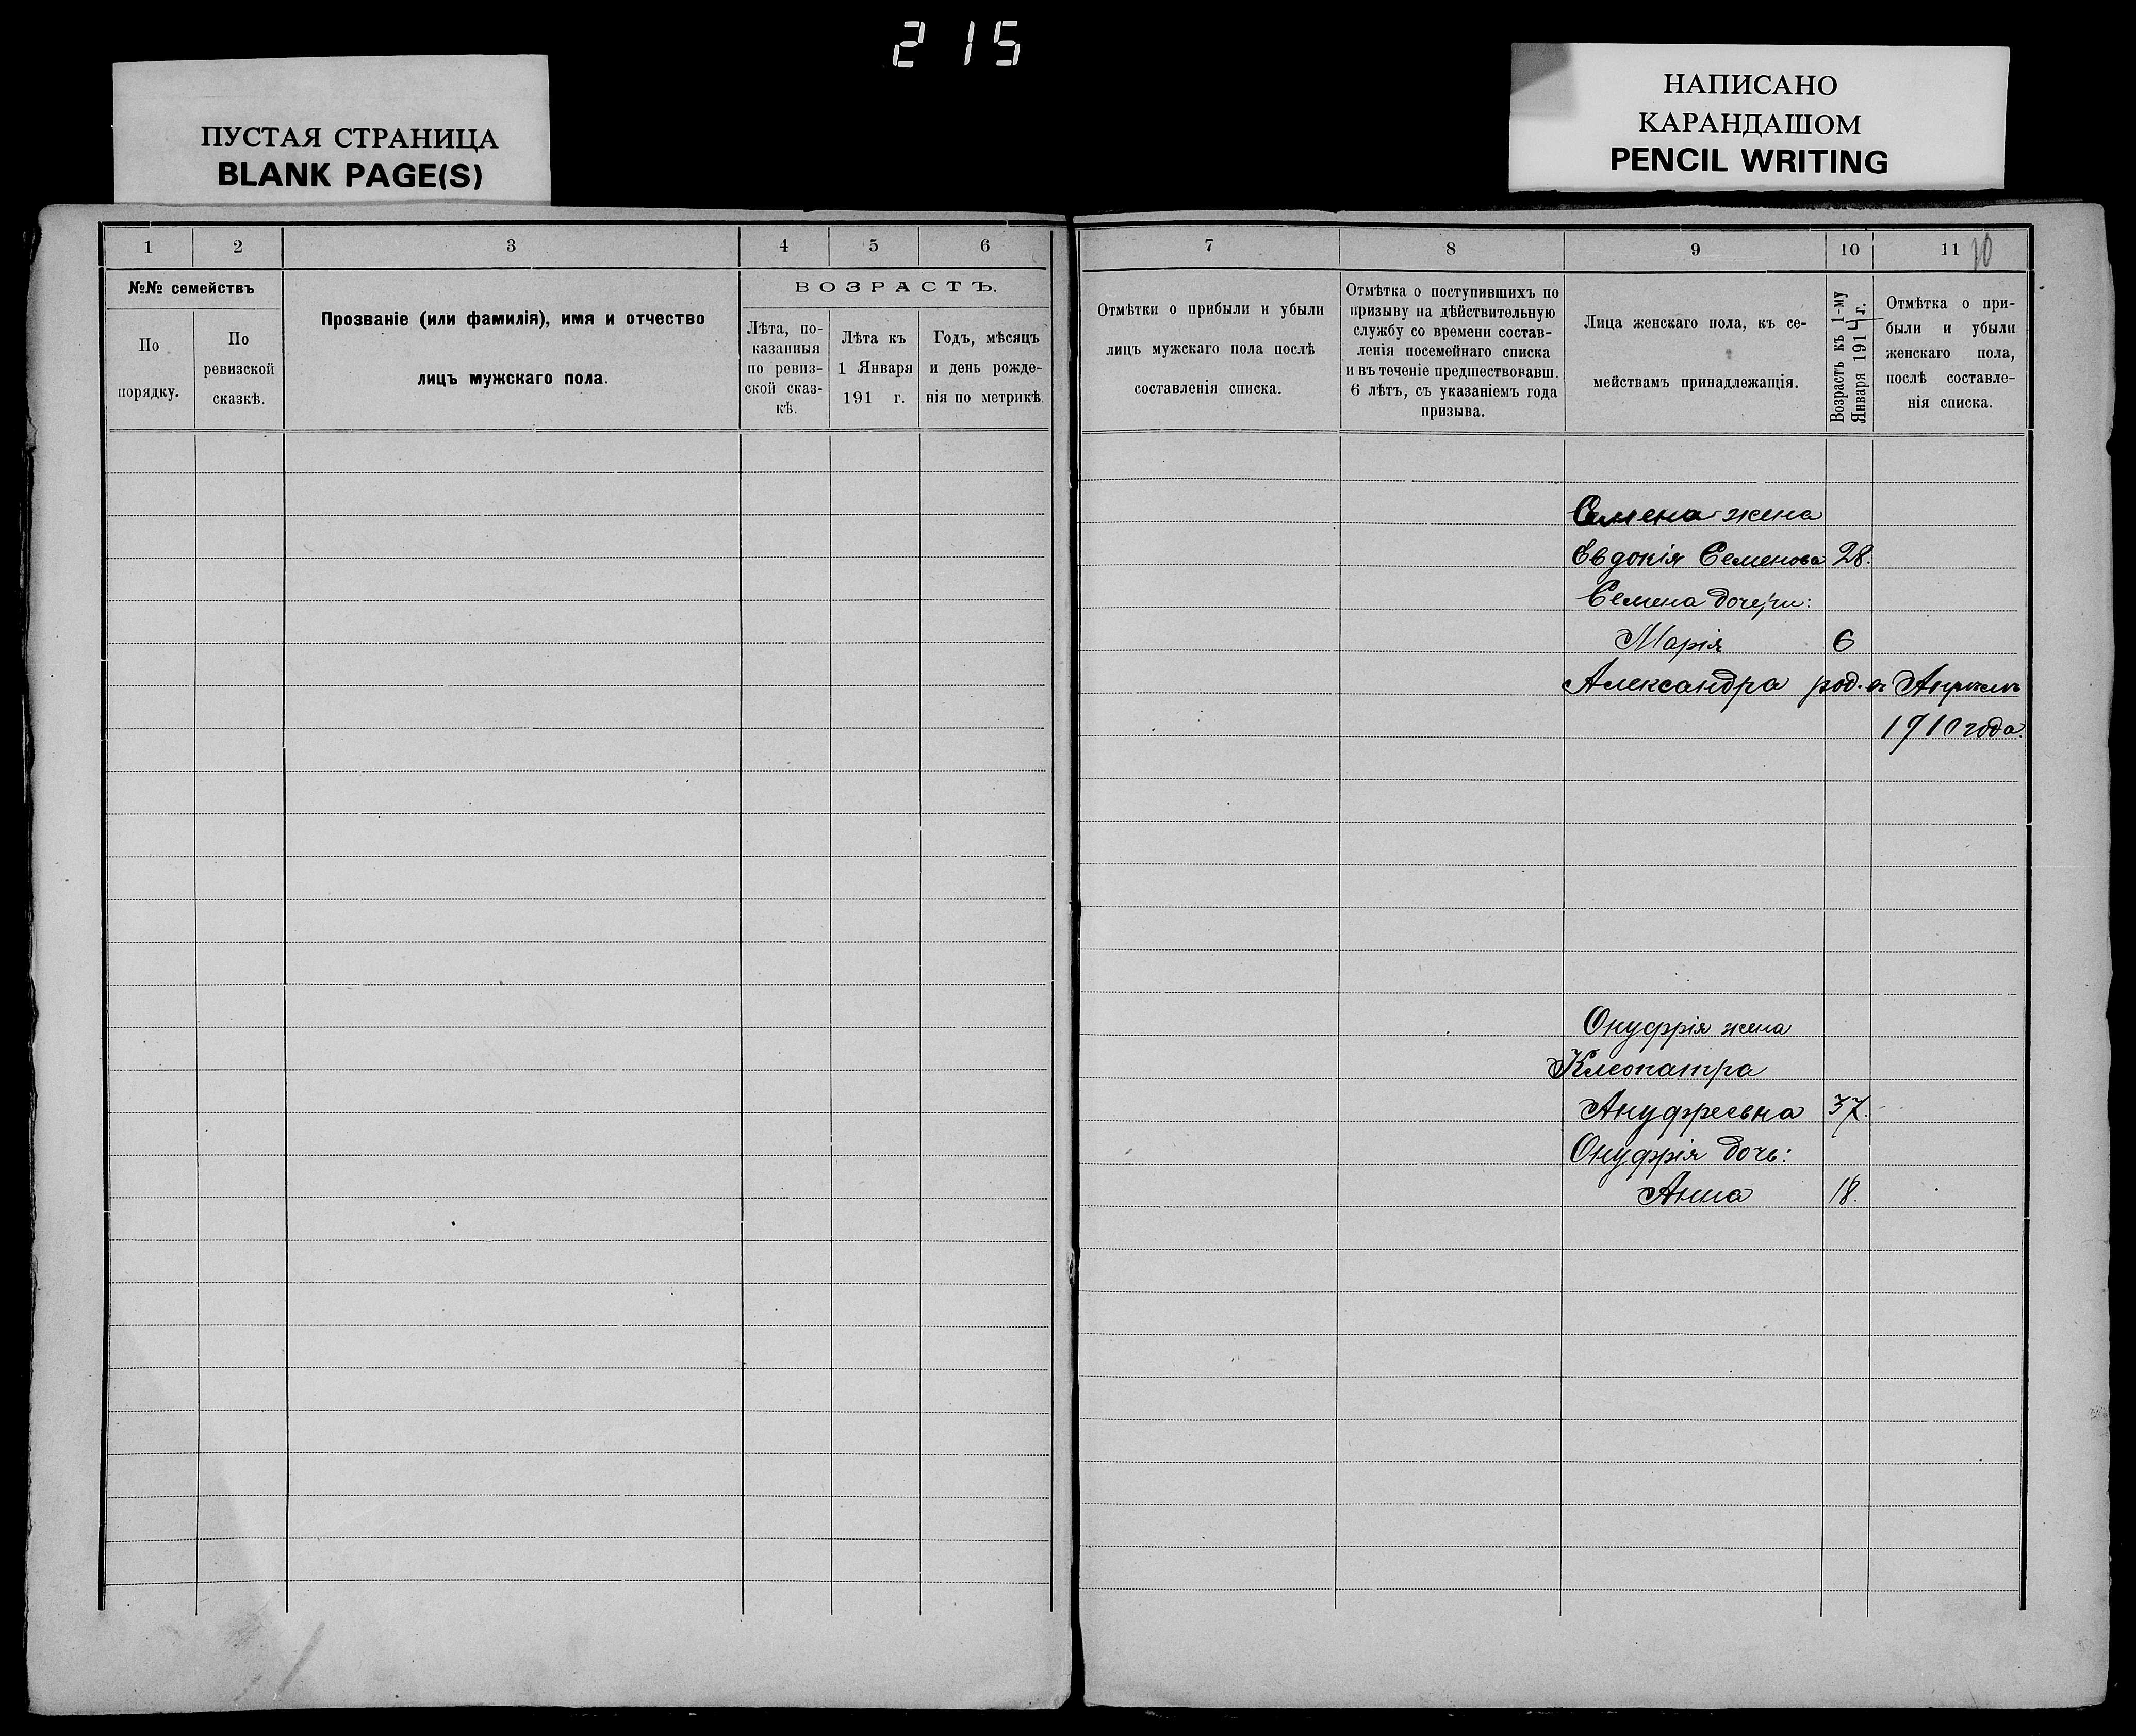 215
ПУСТАЯ СТРАНИЦА
BLANK PAGE(S)
НАПИСАНО
КАРАНДАШОМ
PENCIL WRITING
1 2 3 4 5 6
№№ семействъ
По
порядку.
По
ревизской
сказкѣ.
Прозваніе (или фамилія), имя и отчество
лицъ мужскаго пола.
ВОЗРАСТЪ.
Лѣта, по-
казанныя
по ревиз-
ской сказ-
кѣ.
Лѣта къ
1 Января
191 г.
Годъ, мѣсяцъ
и день рожде-
нія по метрикѣ.
7 8 9 10 11
10
Отмѣтки о прибыли и убыли
лицъ мужскаго пола послѣ
составленія списка.
Отмѣтка о поступившихъ по
призыву на дѣйствительную
службу со времени состав-
ленія посемейнаго списка
и въ теченіе предшествовавш.
6 лѣтъ, съ указаніемъ года
призыва.
Лица женскаго пола, къ се-
мействамъ принадлежащія.
Возрастъ къ 1-му
Января 1914 г.
Отмѣтка о при-
были и убыли
женскаго пола,
послѣ составле-
нія списка.
Семена жена
Евдокія Семенова 28.
Семена дочери:
Марія 6
Александра род. въ Апрѣлѣ
1910 года.
Онуфрія жена
Клеопатра
Ануфреевна 37.
Онуфрія дочь:
Анна 18.